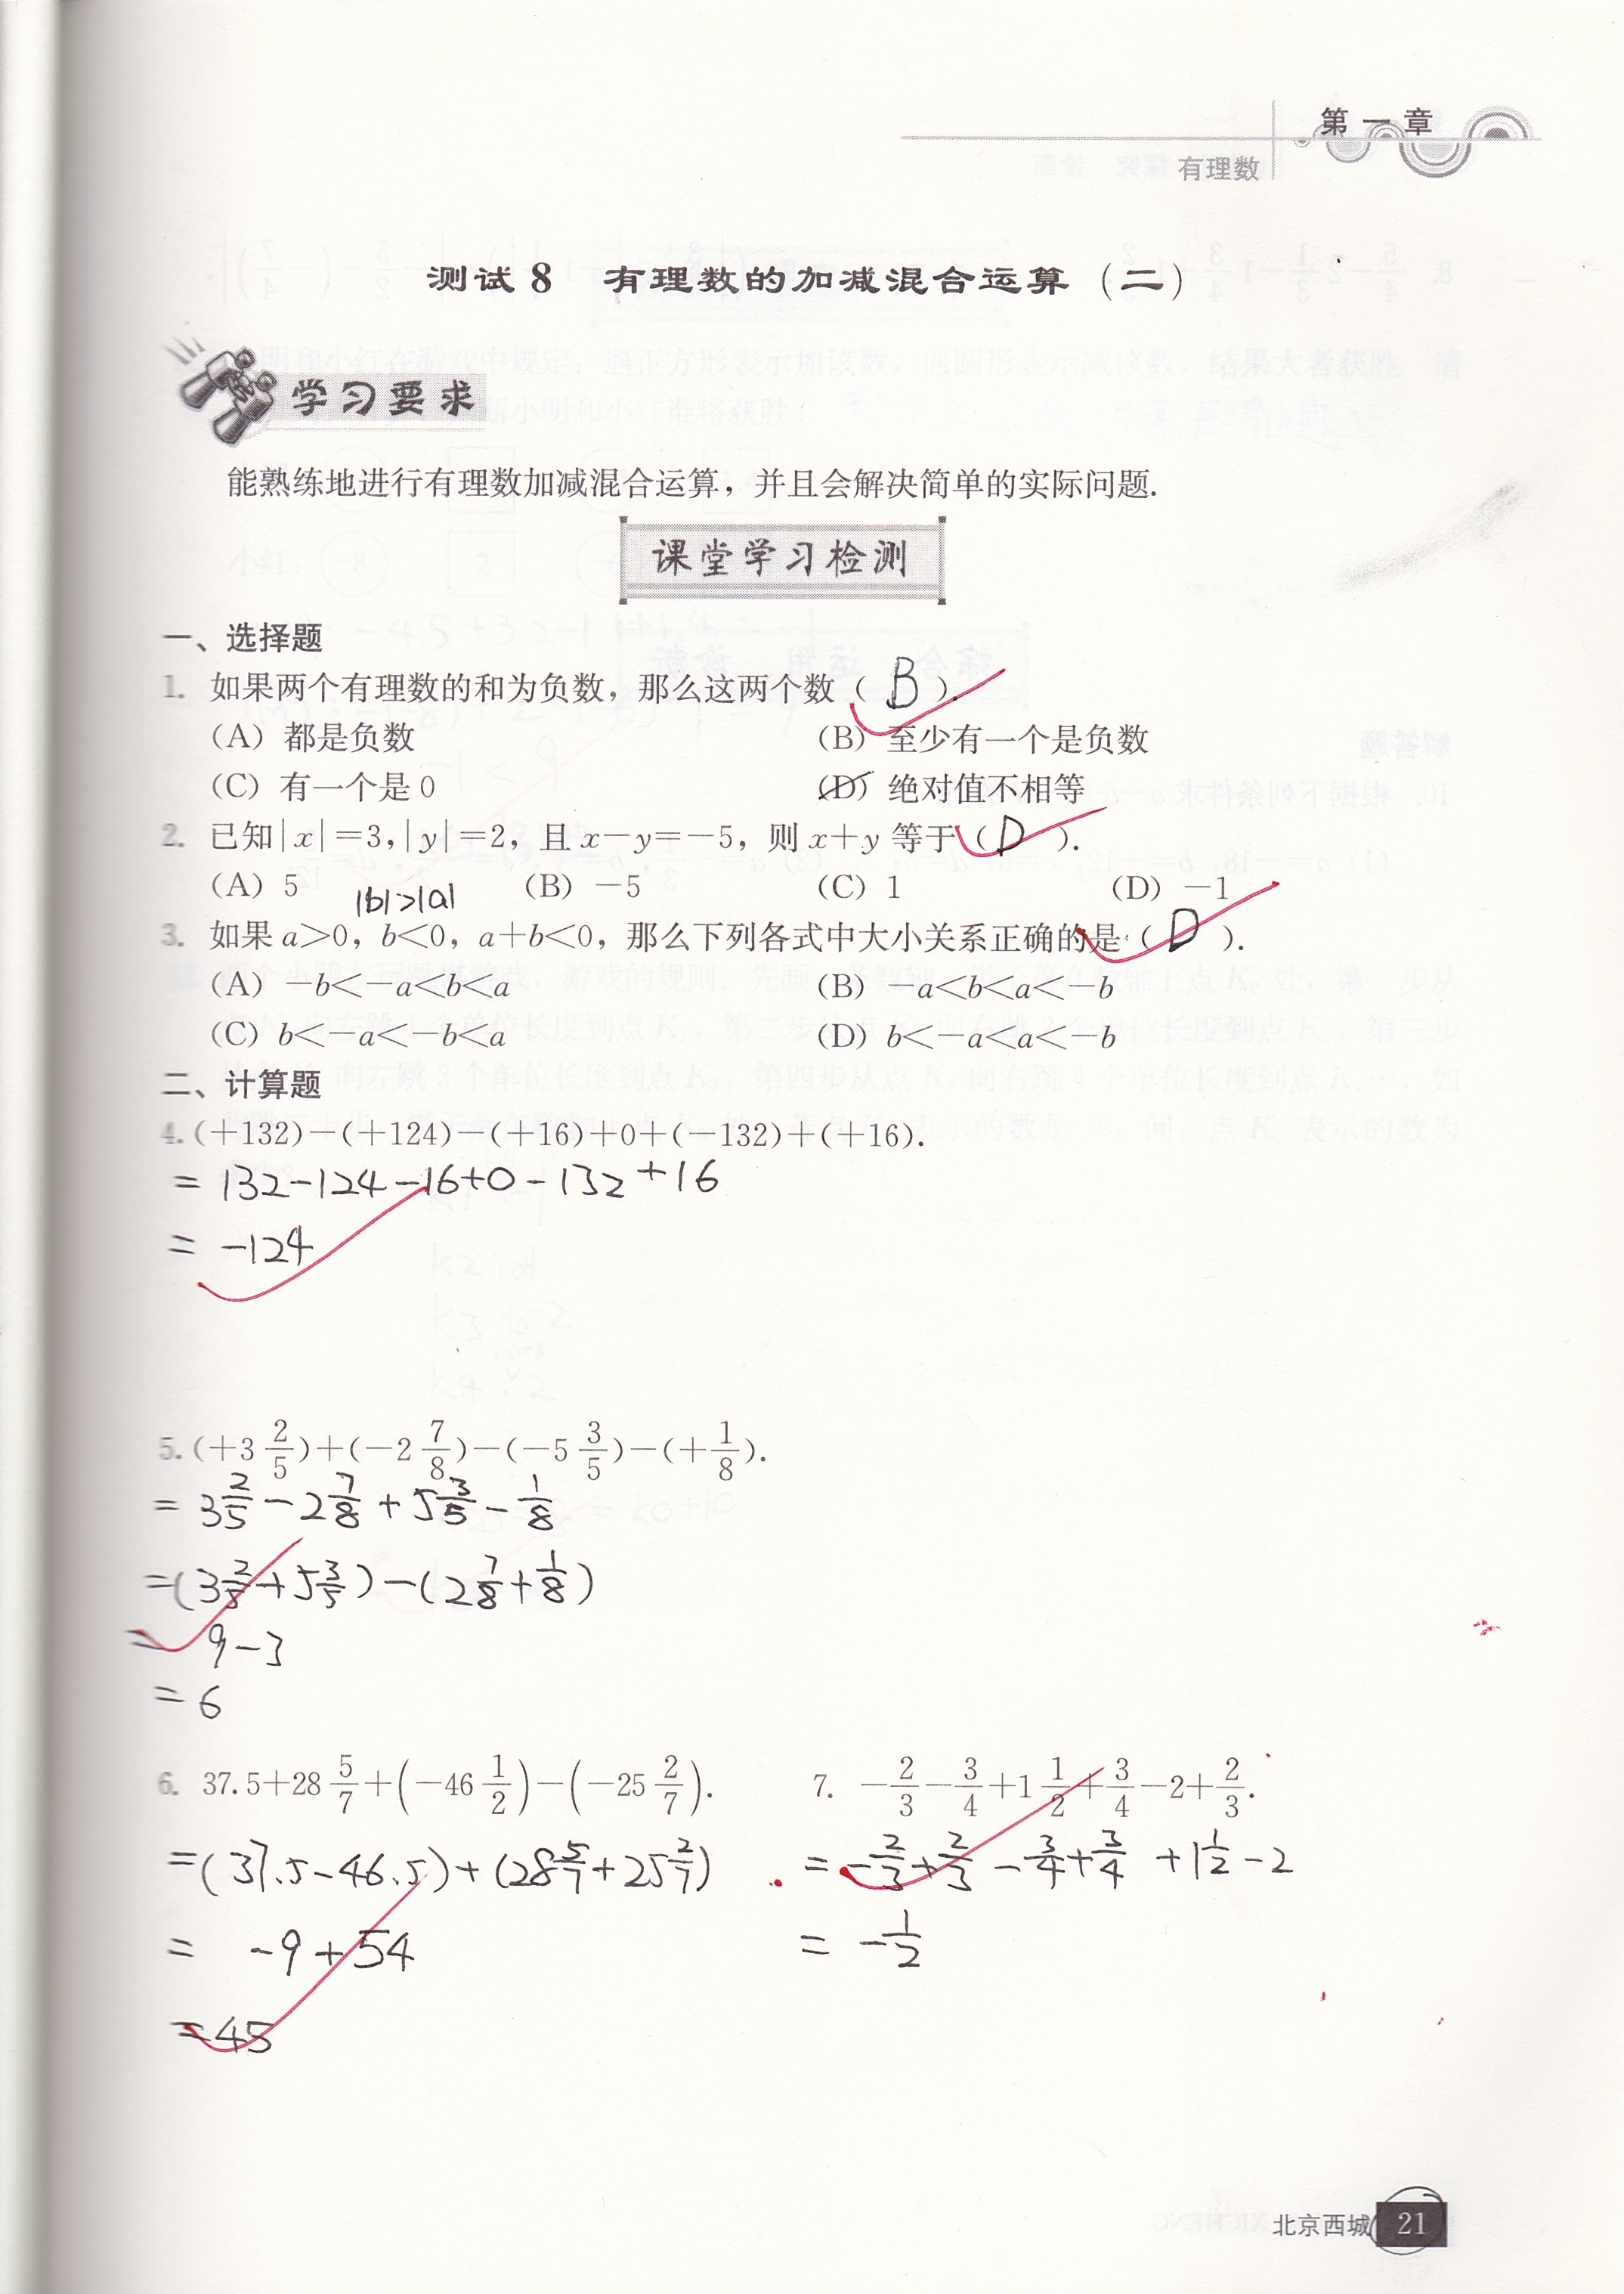 第一章
有理数
测试8 有理数的加减混合运算（二）
学习要求
能熟练地进行有理数加减混合运算，并且会解决简单的实际问题.
课堂学习检测
一、选择题
1. 如果两个有理数的和为负数，那么这两个数（ B ）.
(A) 都是负数 (B) 至少有一个是负数
(C) 有一个是0 (D) 绝对值不相等
2. 已知|x|=3,|y|=2，且x-y=-5，则x+y等于（ D ）.
(A) 5 (B) -5 (C) 1 (D) -1
|b|>|a|
3. 如果a>0，b<0，a+b<0，那么下列各式中大小关系正确的是（ D ）.
(A) -b<-a<b<a (B) -a<b<a<-b
(C) b<-a<-b<a (D) b<-a<a<-b
二、计算题
4. (+132)-(+124)-(+16)+0+(-132)+(+16).
= 132-124-16+0-132+16
= -124
5. (+3 2/5)+(-2 7/8)-(-5 3/5)-(+1/8).
= 3 2/5 - 2 7/8 + 5 3/5 - 1/8
=(3 2/5 + 5 3/5)-(2 7/8 + 1/8)
= 9-3
= 6
6. 37.5+28 5/7+(-46 1/2)-(-25 2/7).
=(37.5-46.5)+(28 5/7+25 2/7)
= -9+54
=45
7. -2/3-3/4+1 1/2+3/4-2+2/3.
= -2/3+2/3-3/4+3/4+1 1/2-2
= -1/2
北京西城 21